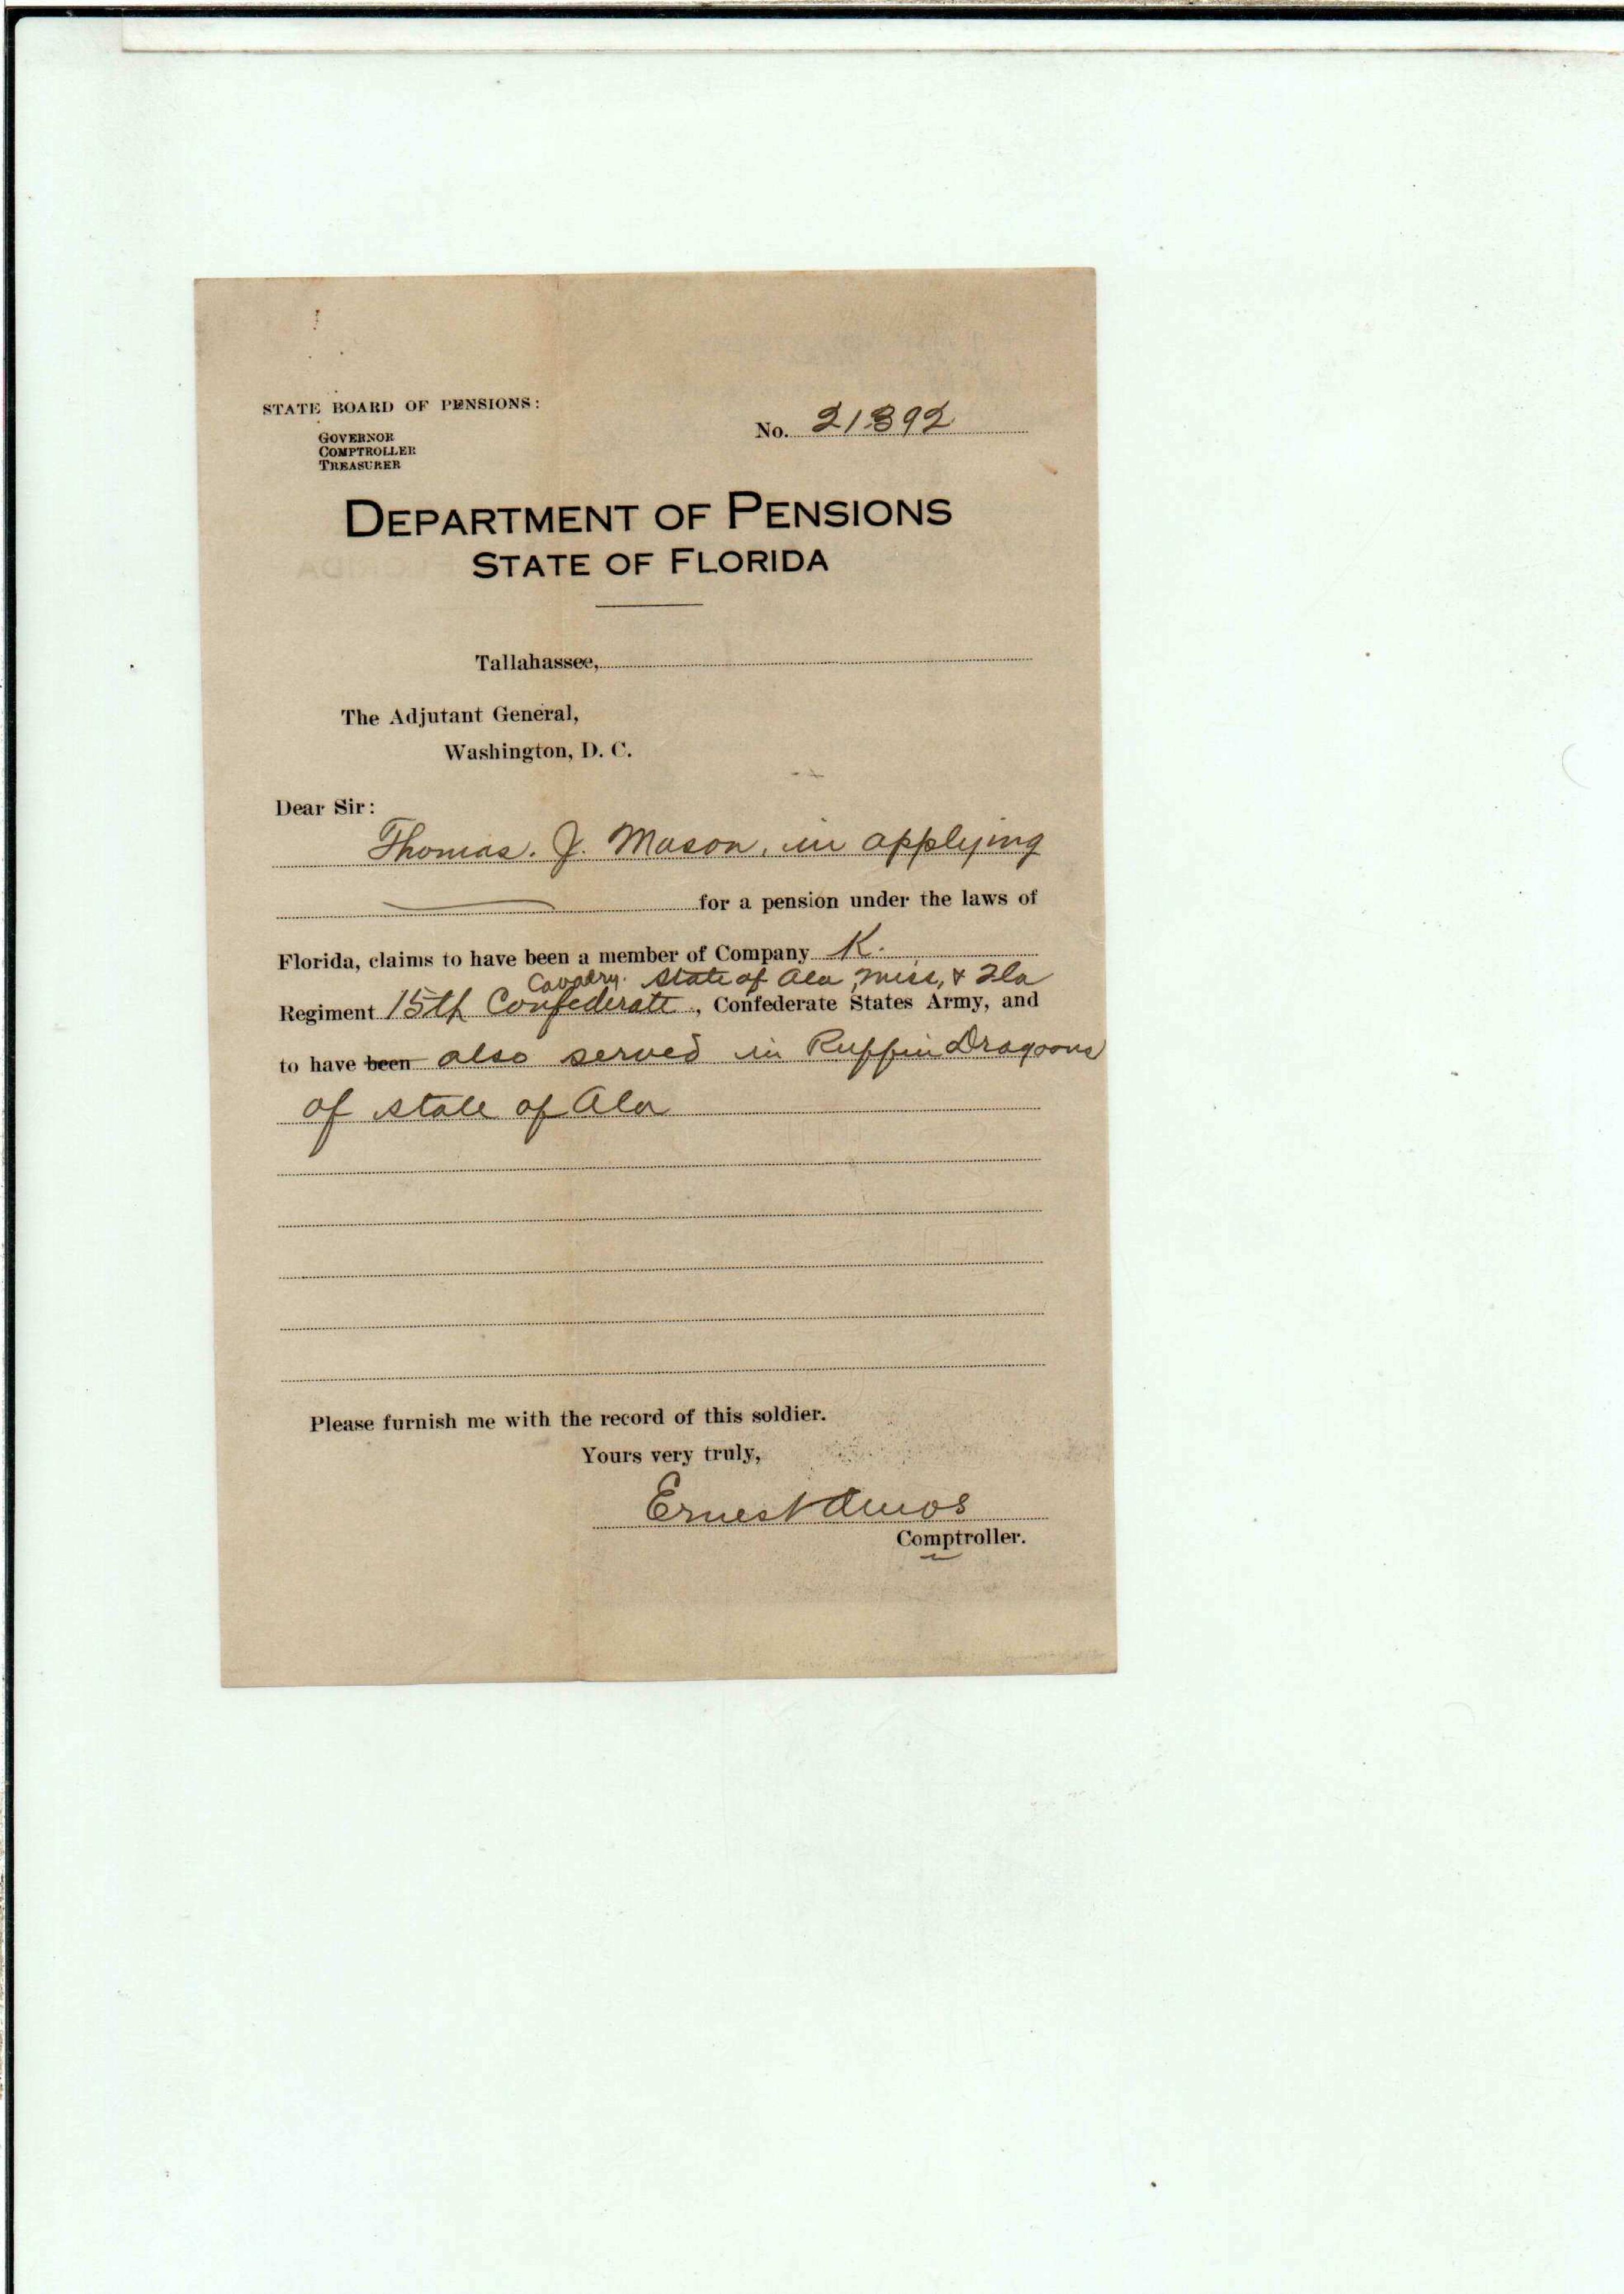 STATE BOARD OF PENSIONS:
GOVERNOR
COMPTROLLER
TREASURER
No. 21892
DEPARTMENT OF PENSIONS
STATE OF FLORIDA
Tallahassee,
The Adjutant General,
Washington, D. C.
Dear Sir:
Thomas. J. Mason, in applying
for a pension under the laws of
Florida, claims to have been a member of Company K.
Cavalry. State of Ala, Miss, & Fla
Regiment 15th Confederate, Confederate States Army, and
to have been also served in Ruffin Dragoons
of state of Ala
Please furnish me with the record of this soldier.
Yours very truly,
Ernest Amos
Comptroller.